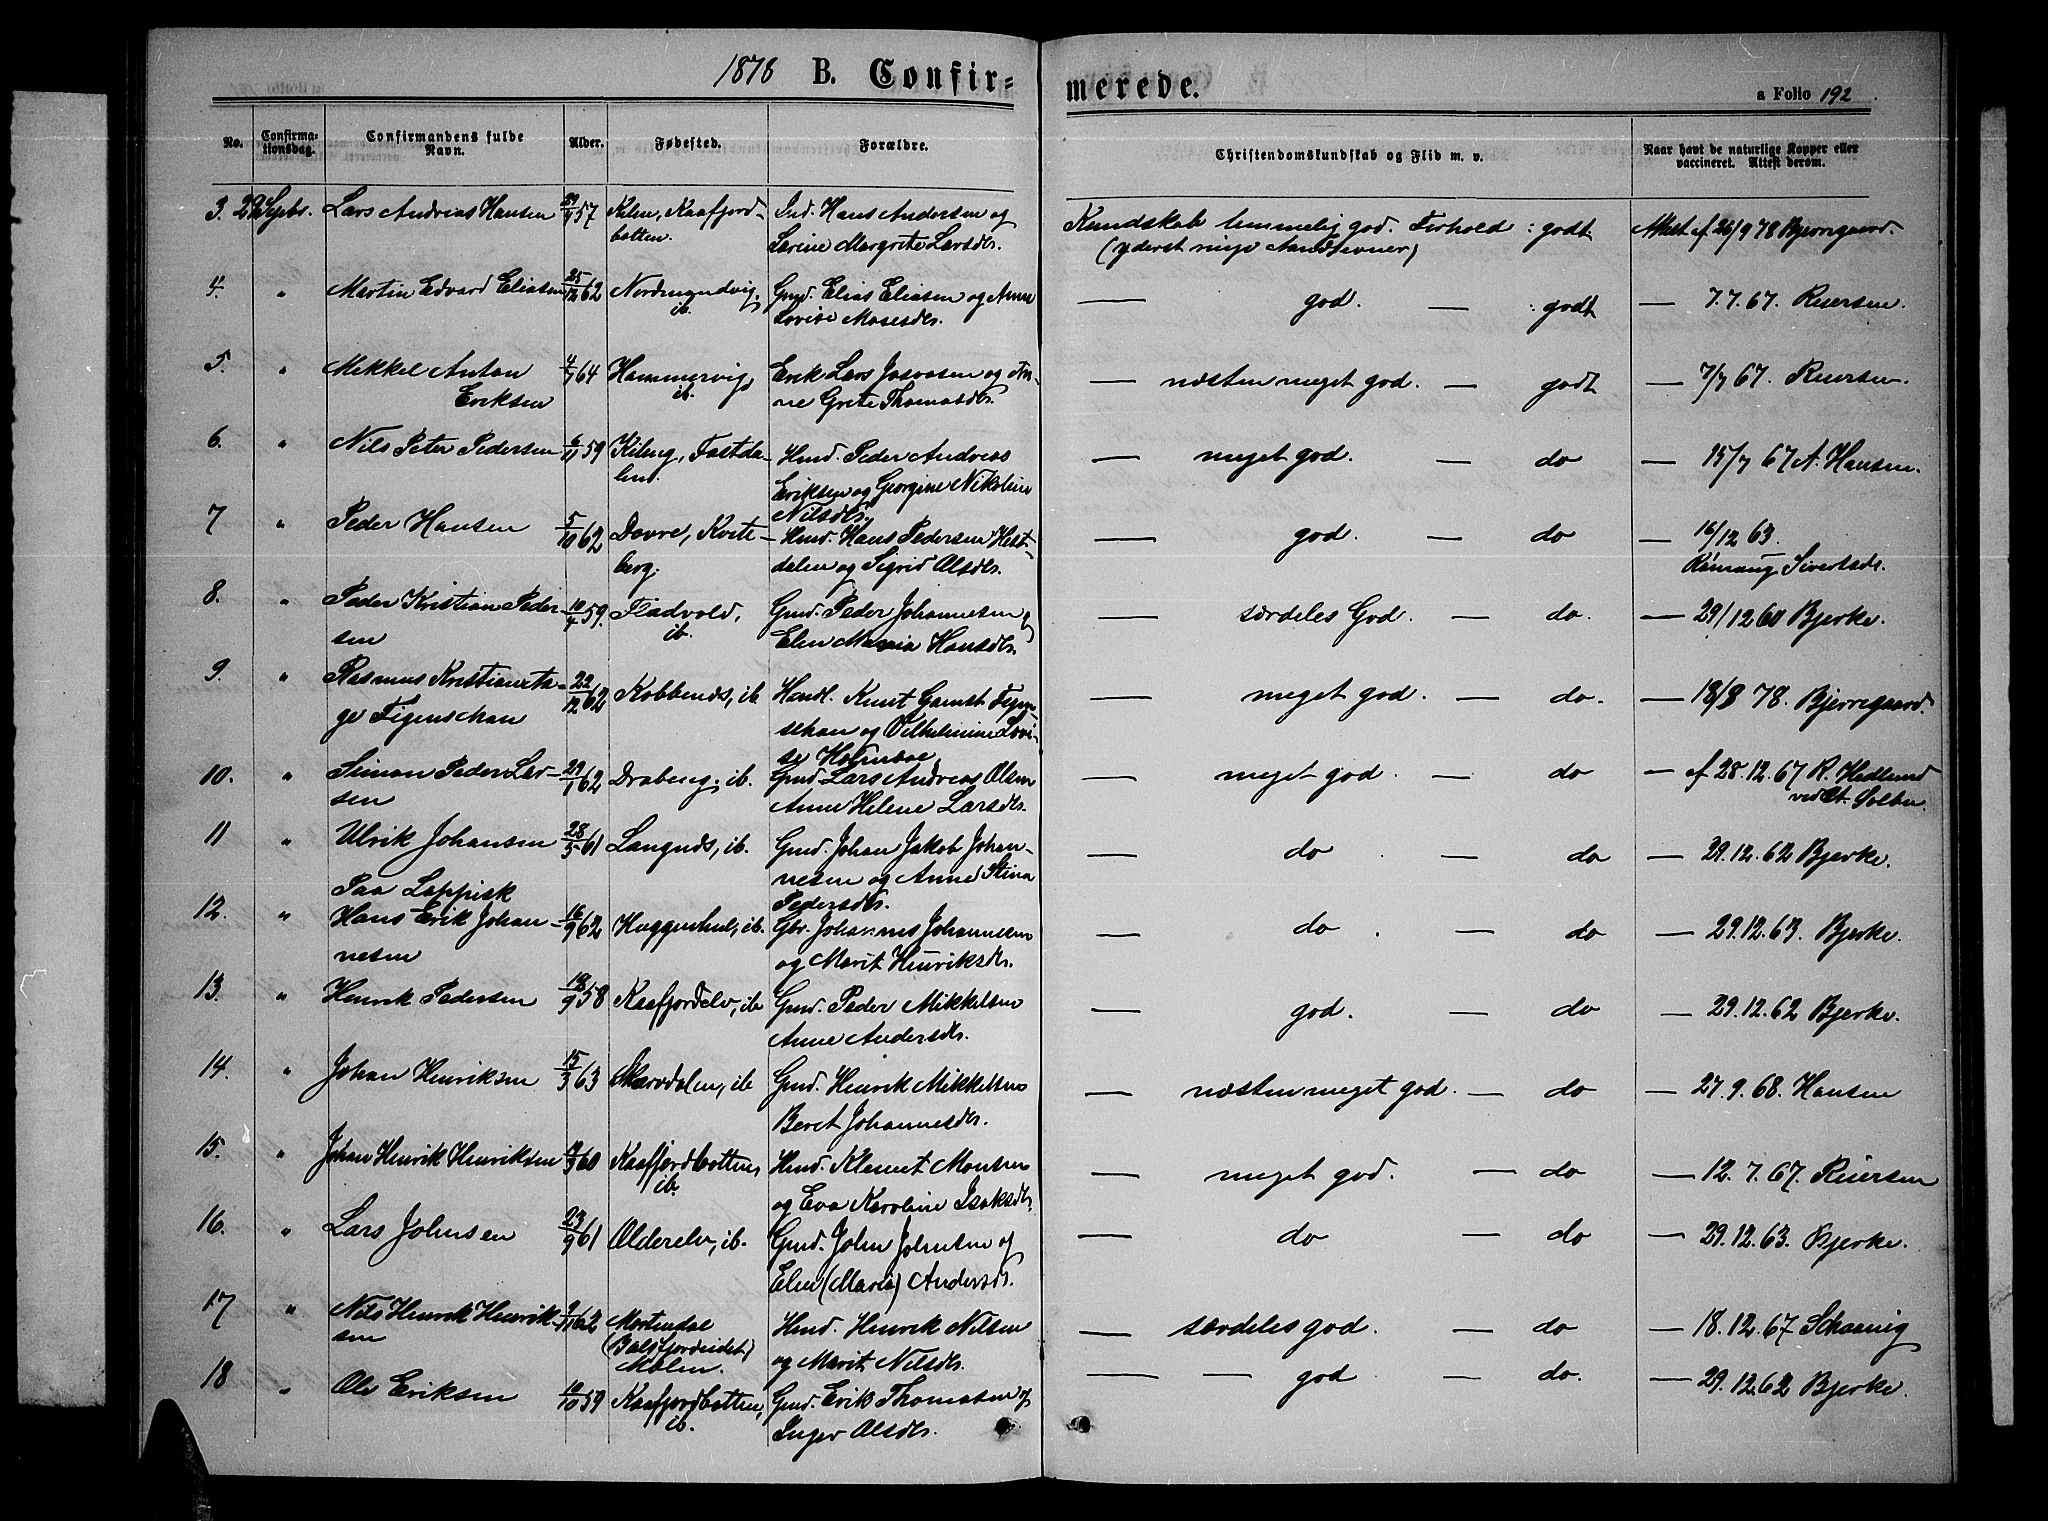 1878 B. Confirmerede. a Folio 192
No. Confirmationsdag. Confirmandens fulde Navn. Alder. Fødested. Forældre. Christendomskundskab og Flid m. v. Naar havt de naturlige Kopper eller vaccineret. Attest derom.
3. 29 Septbr. Lars Andreas Hansen 57 Kilen, Kaafjord- Ind. Hans Andersen og Kundskab temmelig god. Forhold : godt Attest af 26/9 78 Bjerregaard.
botten. Serine Margrete Larsdr. (yderst ringe Aandsevner)
4. " Martin Edvard Eliasen 25/12 62 Nordmandvig, Gmd. Elias Eliasen og Anne — god. — : godt — 7.7.67. Ruersen.
ib. Lovise Mosesdr.
5. " Mikkel Anton 4/7 64 Hammervig, Erik Lars Josvasen og An- — næsten meget god. — godt — 7/7 67. Ruersen.
Eriksen ib. ne Grete Thomasdr.
6. " Nils Peter Pedersen 6/11 59 Kileng, Fastda- Hmd. Peder Andreas — meget god. — do — 15/7 67 A. Hansen.
len. Eriksen og Georgine Nikoline
Nilsdr.
7 " Peder Hansen 5/10 62 Dovre, Kvite- Hmd. Hans Pedersen Hest- — god. — do — 16/12 63.
berg. dalen og Sigrid Olsdr. Rønnaug Sivertsdr.
8. " Peder Kristian Peder- 10/4 59. Fladvold, Gmd. Peder Johannesen og — særdeles God. — do. — 29/12 60 Bjerke.
sen ib. Elen Maria Hansdr.
9. " Rasmus Kristian Ta- 22/12 62 Kobbenæs, ib. Handl. Knut Gamst Figen- — meget god. — do. — 18/8 78. Bjerregaard.
ge Figenschau schau og Vilhelmine Lovi-
se Holmboe
10. " Simon Peder Lar- 29/1 62 Drabeng, ib. Gmd. Lars Andreas Olsen — meget god. — do — af 28.12.67 R. Hedlund
sen Anne Helene Larsdr.
11 " Ulrik Johansen 28/5 61 Langnæs, ib. Gmd. Johan Jakob Johan- — do. — do — 29.12.62 Bjerke.
nesen og Anne Stina
Paa Lappisk Pedersdr.
12. " Hans Erik Johan- 16/9 62 Huggenhul, ib. Gbr. Johannes Johannesen — do. — do — 29.12.63. Bjerke.
nesen og Marit Henriksdr.
13. " Henrik Pedersen 19/9 58 Kaafjordelv, ib Gmd. Peder Mikkelsen — god. — do — 29.12.62 Bjerke.
Anne Andersdr.
14. " Johan Henriksen 15/3 63 Skarvdalen, ib Gmd. Henrik Mikkelsen — næsten meget god. — do — 27.9.68. Hansen
Beret Johannesdr.
15. " Johan Henrik Henriksen 60 Kaafjordbotten, Hmd. Klemet Monsen — meget god. — do — 12.7.67. Ruersen
ib. og Eva Karoline Isaksdr.
16. " Lars Johnsen 23/9 61 Olderelv, ib. Gmd. John Johnsen og — do — do — 29.12.63. Bjerke.
Elen (Maria) Andersdr.
17 " Nils Henrik Henrik- 9/11 62 Mortendal Hmd. Henrik Nilsen — særdeles god. — do — 18.12.67 Schanng
sen (Balsfjordeidet) og Marit Nilsdr.
Maalen.
18 " Ole Eriksen 10/10 59 Kaafjordbotten, Gmd. Erik Thomasen og — — god — do. — 29.12.62 Bjerke.
ib. Inger Olsdr.